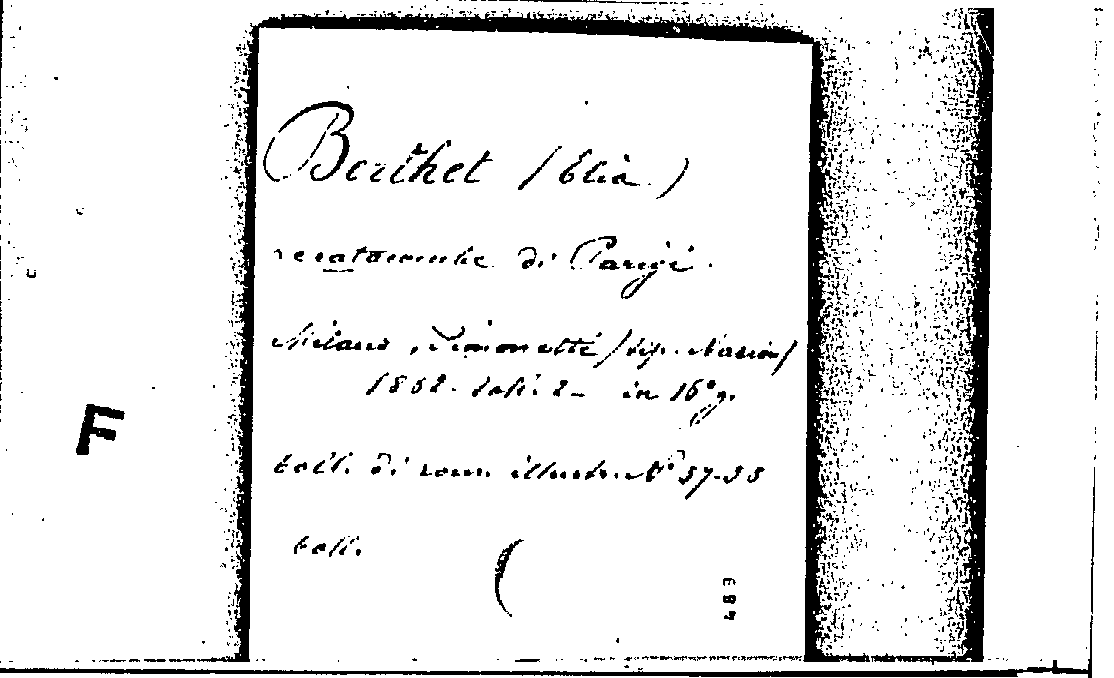 Berthet (Elia)
catacombe di Parigi.
Milano, Simonetti (tip. Nazion)
1862. in 16° g.
Coll. di rom. illustr. N° 37-38
Coll. (
F